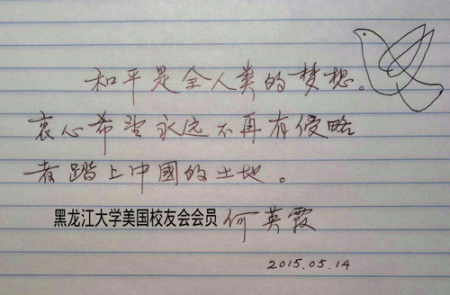 和平是全人类的梦想。
衷心希望永远不再有侵略
者踏上中國的土地。
黑龙江大学美国校友会会员 何英霞
2015.05.14